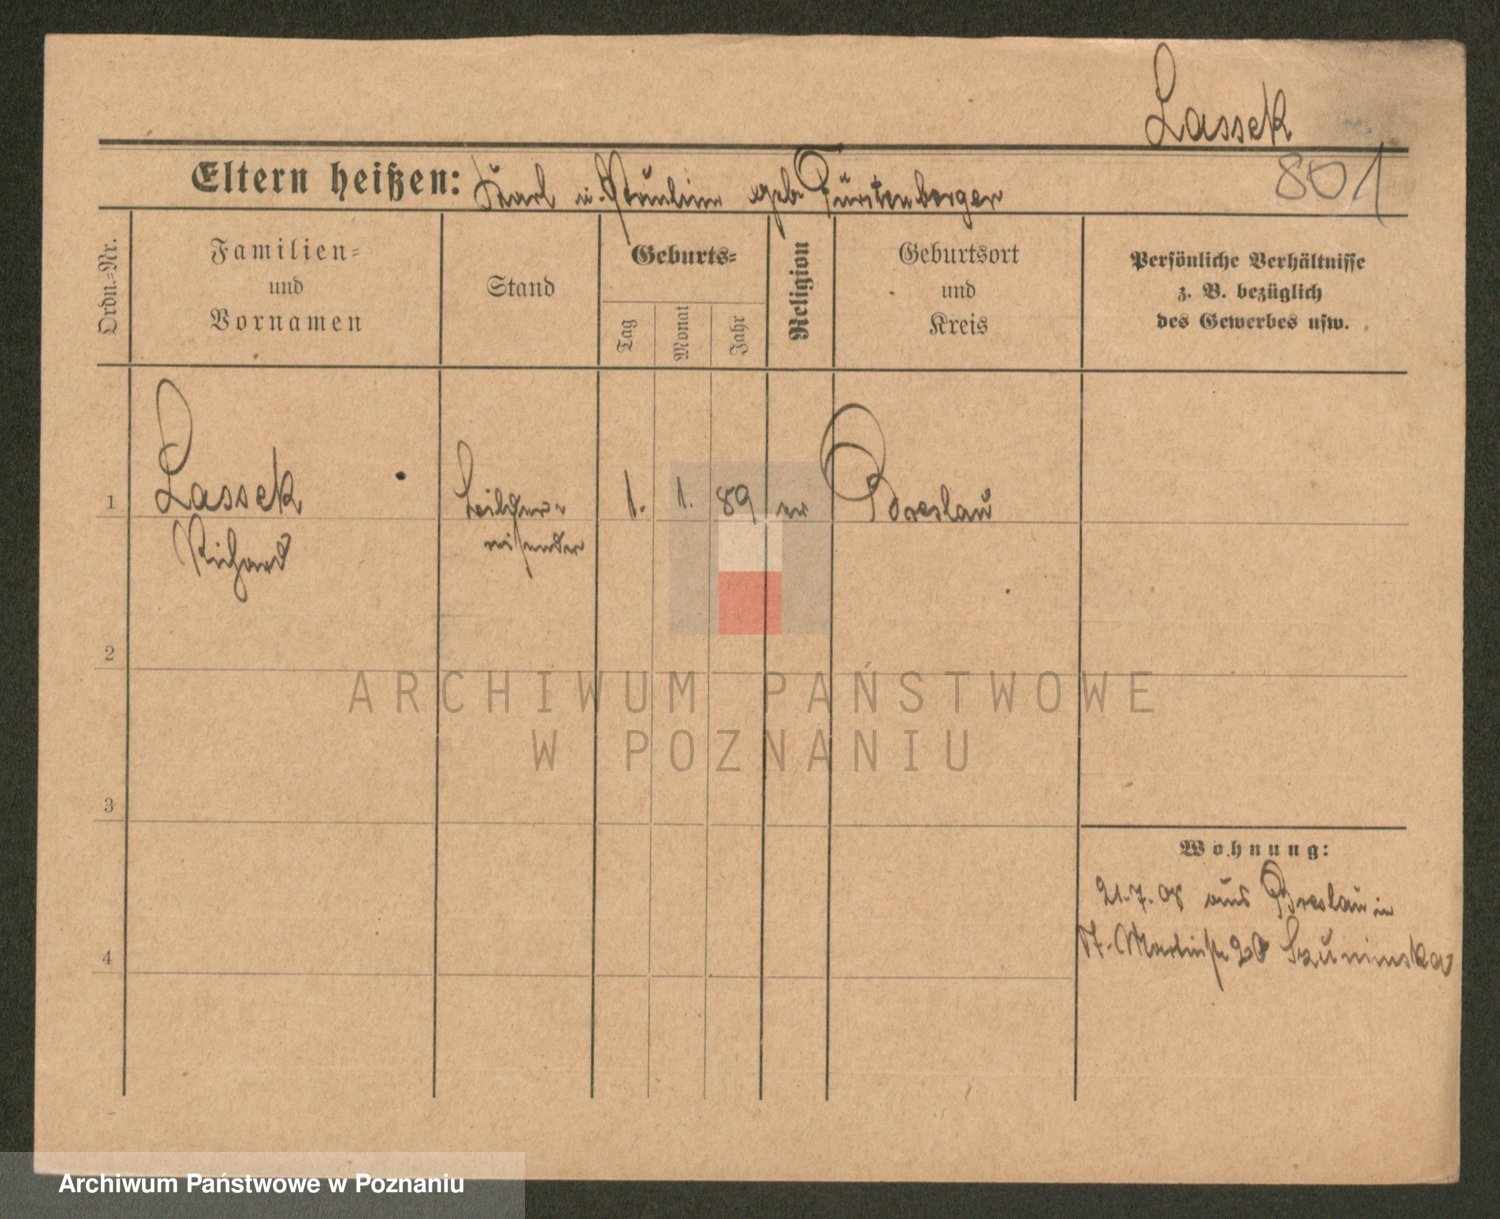 Lassek
801
Eltern heißen: Karl u. Pauline geb. Fürstenberger
Ordn.-Nr.
Familien-
und
Vornamen
Stand
Geburts-
Tag
Monat
Jahr
Religion
Geburtsort
und
Kreis
Persönliche Verhältnisse
z. B. bezüglich
des Gewerbes usw.
1
Lassek
Richard
reisender
1. 1. 89 ev
Breslau
2
3
4
Wohnung:
21.7.08 aus Breslau in
St. Martinstr 20
ARCHIWUM PAŃSTWOWE
W POZNANIU
Archiwum Państwowe w Poznaniu